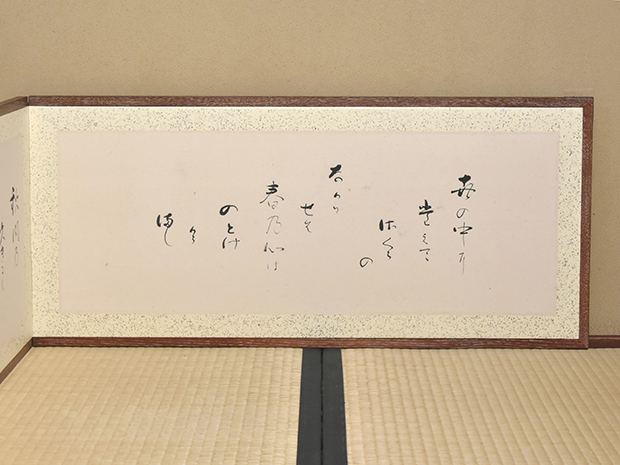 世の中に
堂えて
さくら
の
なかり
せは
春乃心は
のとけ
から
まし